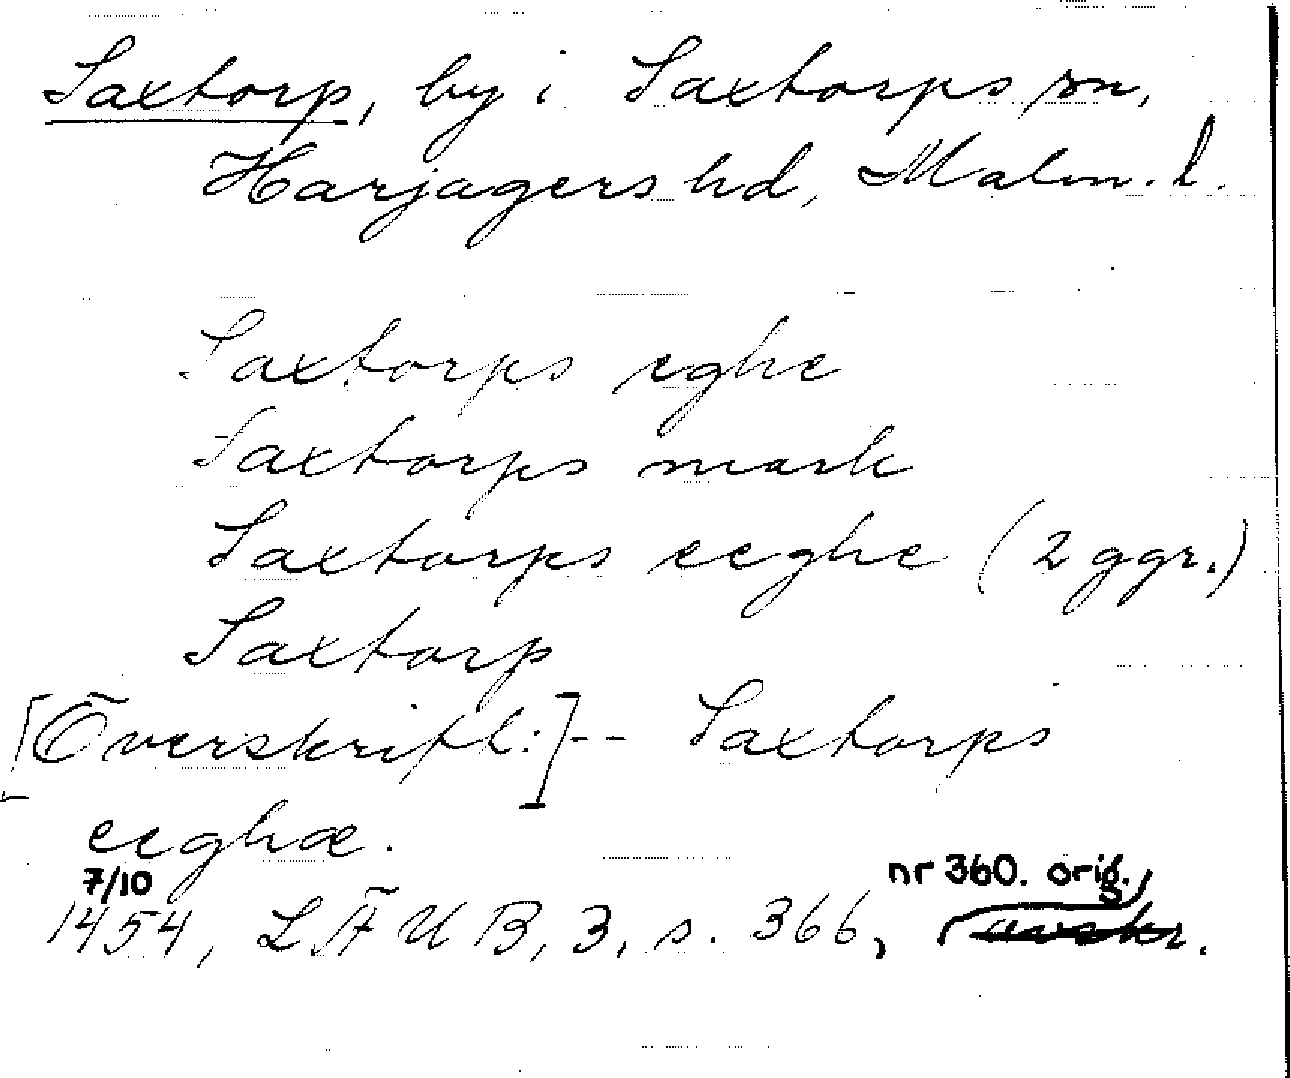 Saxtorp, by i Saxtorps sn,
Harjagers hd, Malm. l.
Saxtorps eghe
Saxtorps mark
Saxtorps eeghe (2 ggr.)
Saxtorp
[Överskrift:]-- Saxtorps
eeghæ.
7/10 nr 360. orig.,
1454, LÄUB, 3, s. 366, avskr.